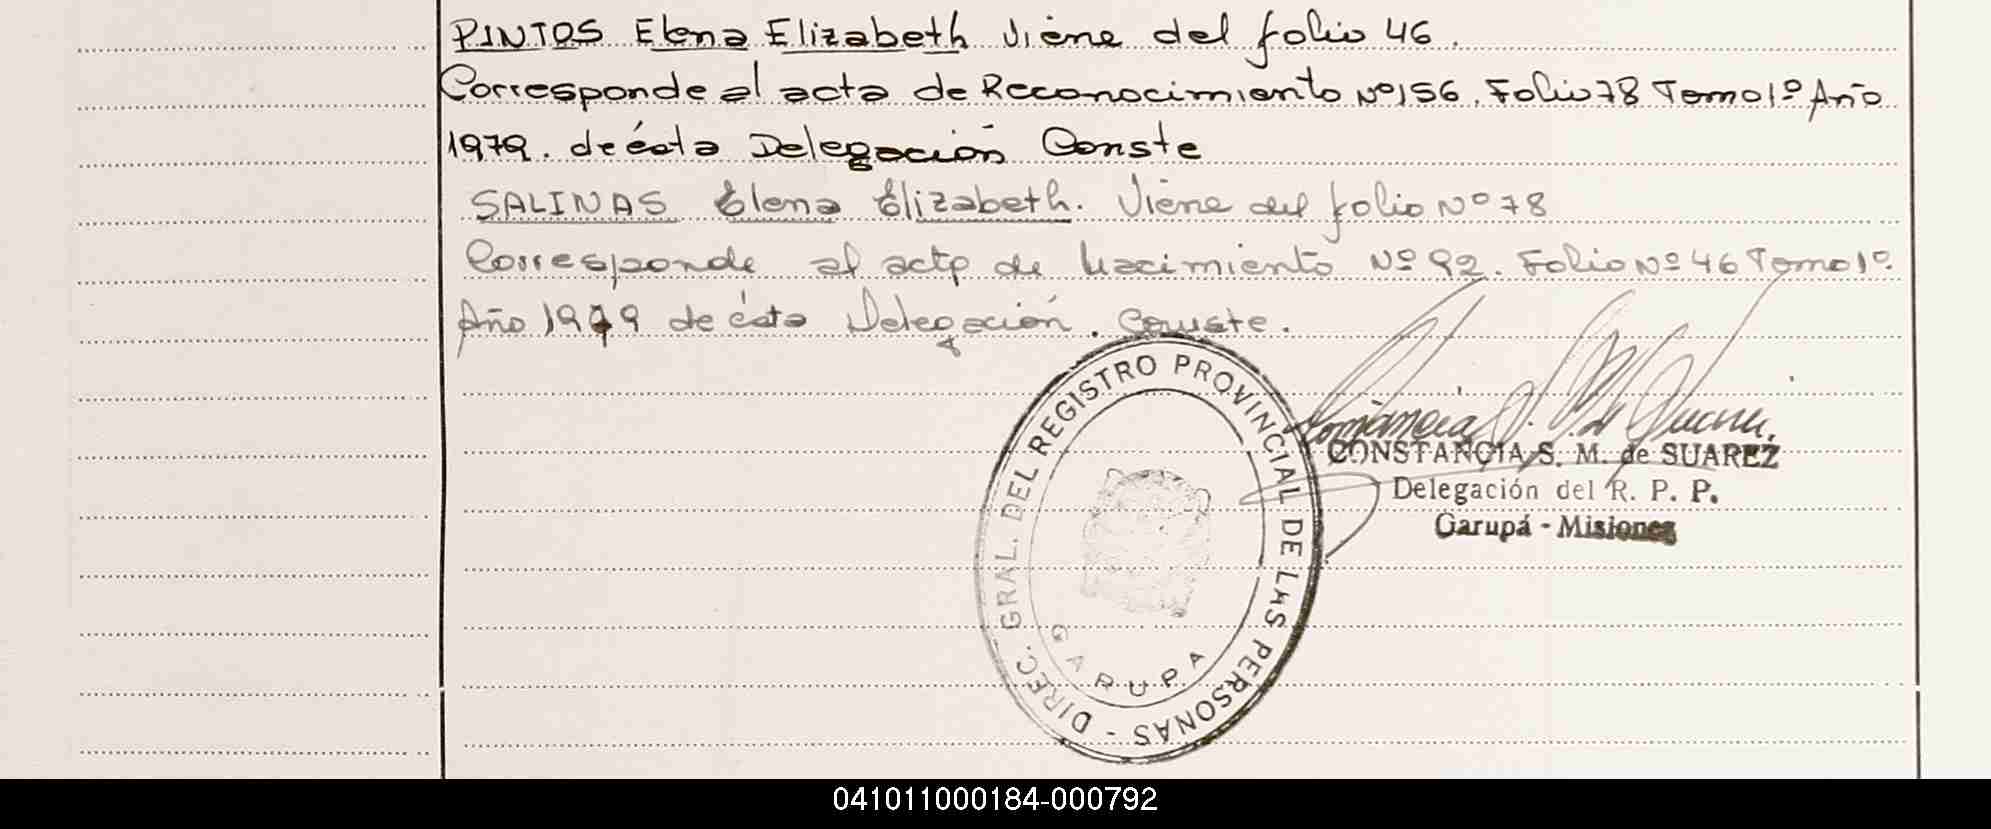 PINTOS Elena Elizabeth Viene del folio 46.
Corresponde al acta de Reconocimiento Nº156. Folio 78 Tomo 1º Año
1979. de ésta Delegación Conste
SALINAS Elena Elizabeth. Viene del folio Nº 78
Corresponde al acta de Nacimiento Nº 92. Folio Nº 46 Tomo 1º.
Año 1979 de ésta Delegación. Conste.
DIREC. GRAL. DEL REGISTRO PROVINCIAL DE LAS PERSONAS -
GARUPA
CONSTANCIA S. M. de SUAREZ
Delegación del R. P. P.
Garupá - Misiones
041011000184-000792